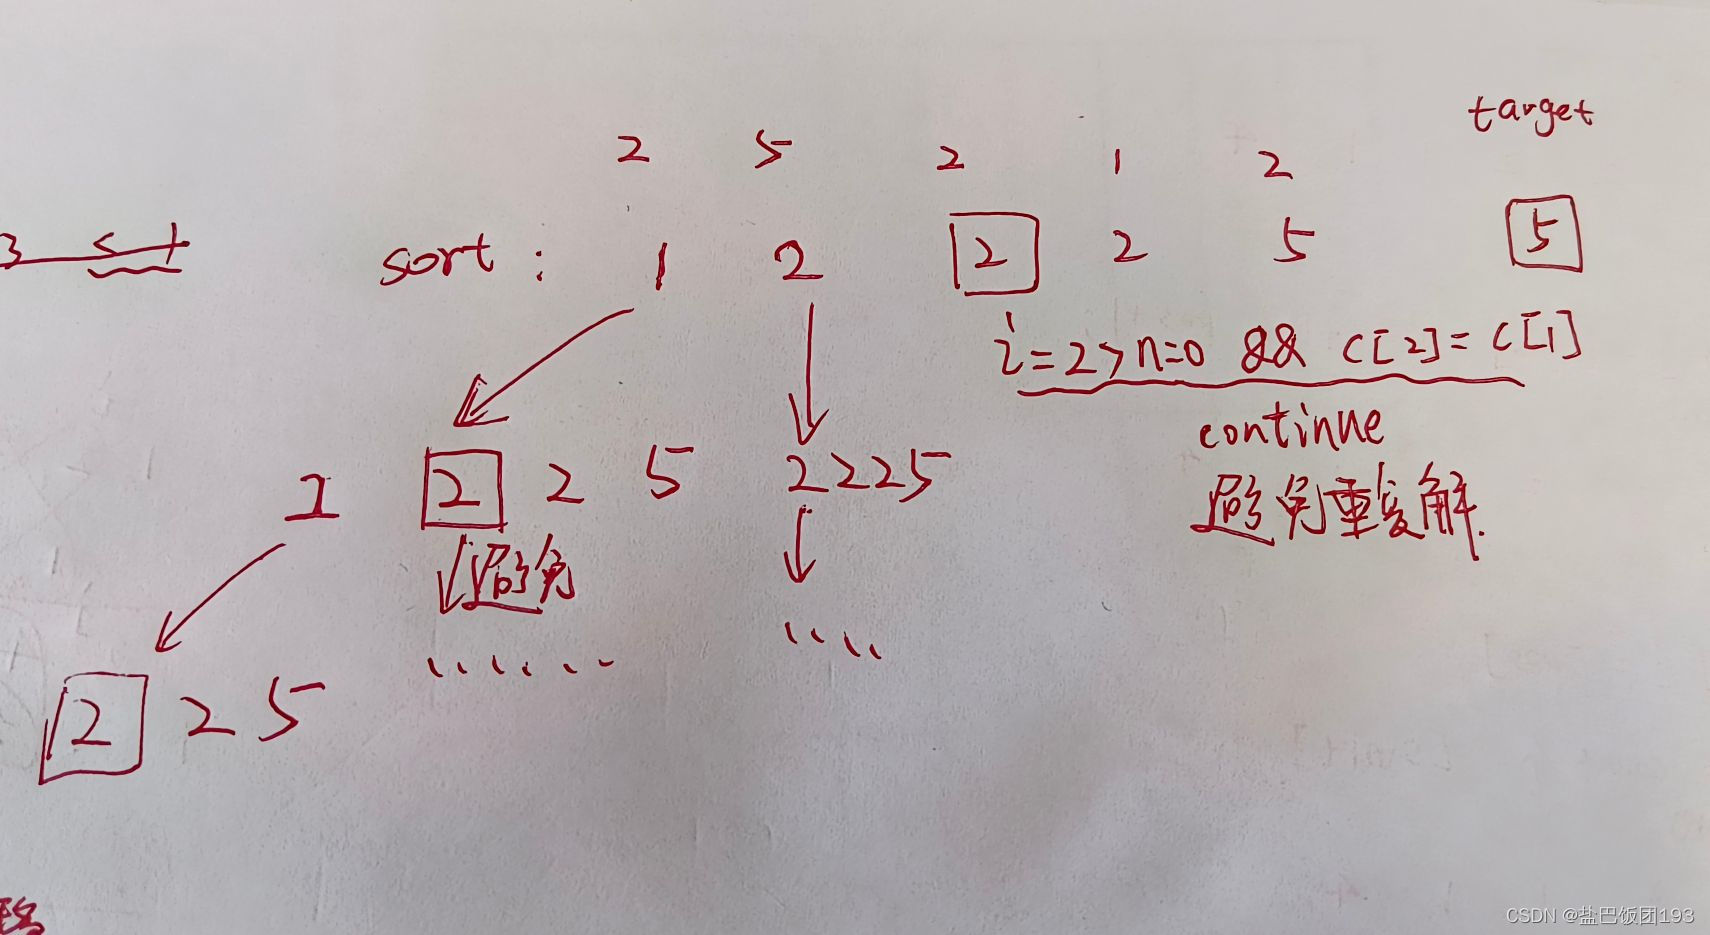 target
2 5 2 1 2
sort : 1 2 2 2 5 5
i=2>n=0 && c[2]=c[1]
continue
避免重复解.
1 2 2 5 2225
避免
2 2 5
CSDN @盐巴饭团193